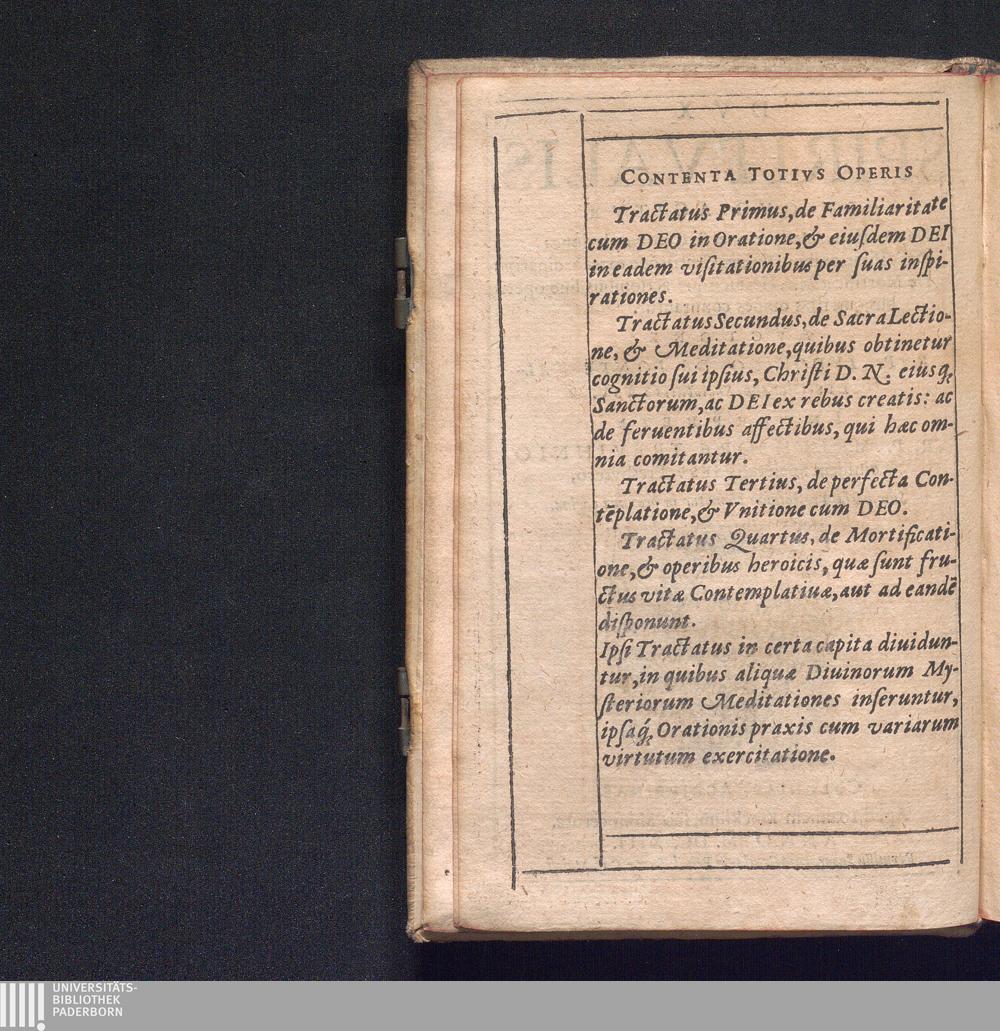 CONTENTA TOTIVS OPERIS
Tractatus Primus, de Familiaritate
cum DEO in Oratione, & eiuſdem DEI
in eadem viſitationibus per ſuas inſpi-
rationes.
Tractatus Secundus, de Sacra Lectio-
ne, & Meditatione, quibus obtinetur
cognitio ſui ipſius, Chriſti D. N. eiusq́;
Sanctorum, ac DEI ex rebus creatis: ac
de feruentibus affectibus, qui hæc om-
nia comitantur.
Tractatus Tertius, de perfecta Con-
tẽplatione, & Vnitione cum DEO.
Tractatus Quartus, de Mortificati-
one, & operibus heroicis, quæ ſunt fru-
ctus vitæ Contemplatiuæ, aut ad eandẽ
diſponunt.
Ipſi Tractatus in certa capita diuidun-
tur, in quibus aliquæ Diuinorum My-
ſteriorum Meditationes inſeruntur,
ipſaq́; Orationis praxis cum variarum
virtutum exercitatione.
UNIVERSITÄTS-
BIBLIOTHEK
PADERBORN